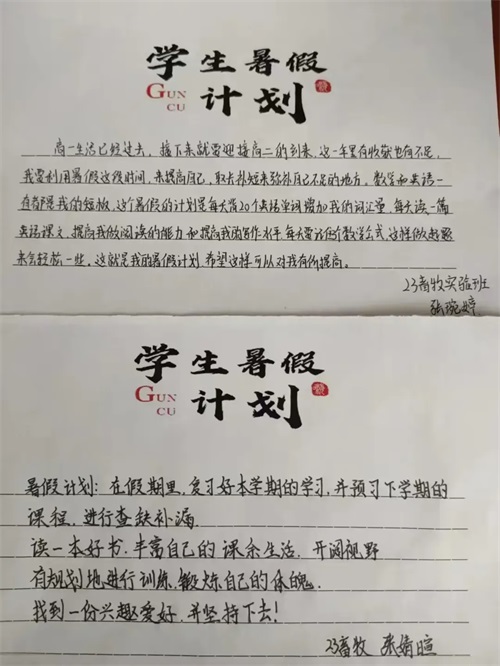 学生暑假
GUN CU 计划
高一生活已经过去，接下来就要迎接高二的到来，这一年里有收获也有不足，
我要利用暑假这段时间，来提高自己，取长补短来弥补自己不足的地方，数学和英语一
直都是我的短板，这个暑假的计划是每天背20个英语单词增加我的词汇量，每天读一篇
英语课文，提高我做阅读的能力和提高我的写作水平，每天要记住个数学公式，这样做起题
来会轻松一些，这就是我的暑假计划，希望这样可以对我有所提高。
23畜牧实验班
张琬婷
学生暑假
GUN CU 计划
暑假计划：在假期里，复习好本学期的学习，并预习下学期的
课程，进行查缺补漏
读一本好书，丰富自己的课余生活，开阔视野
有规划地进行训练，锻炼自己的体魄
找到一份兴趣爱好，并坚持下去！
23畜牧 张婧暄